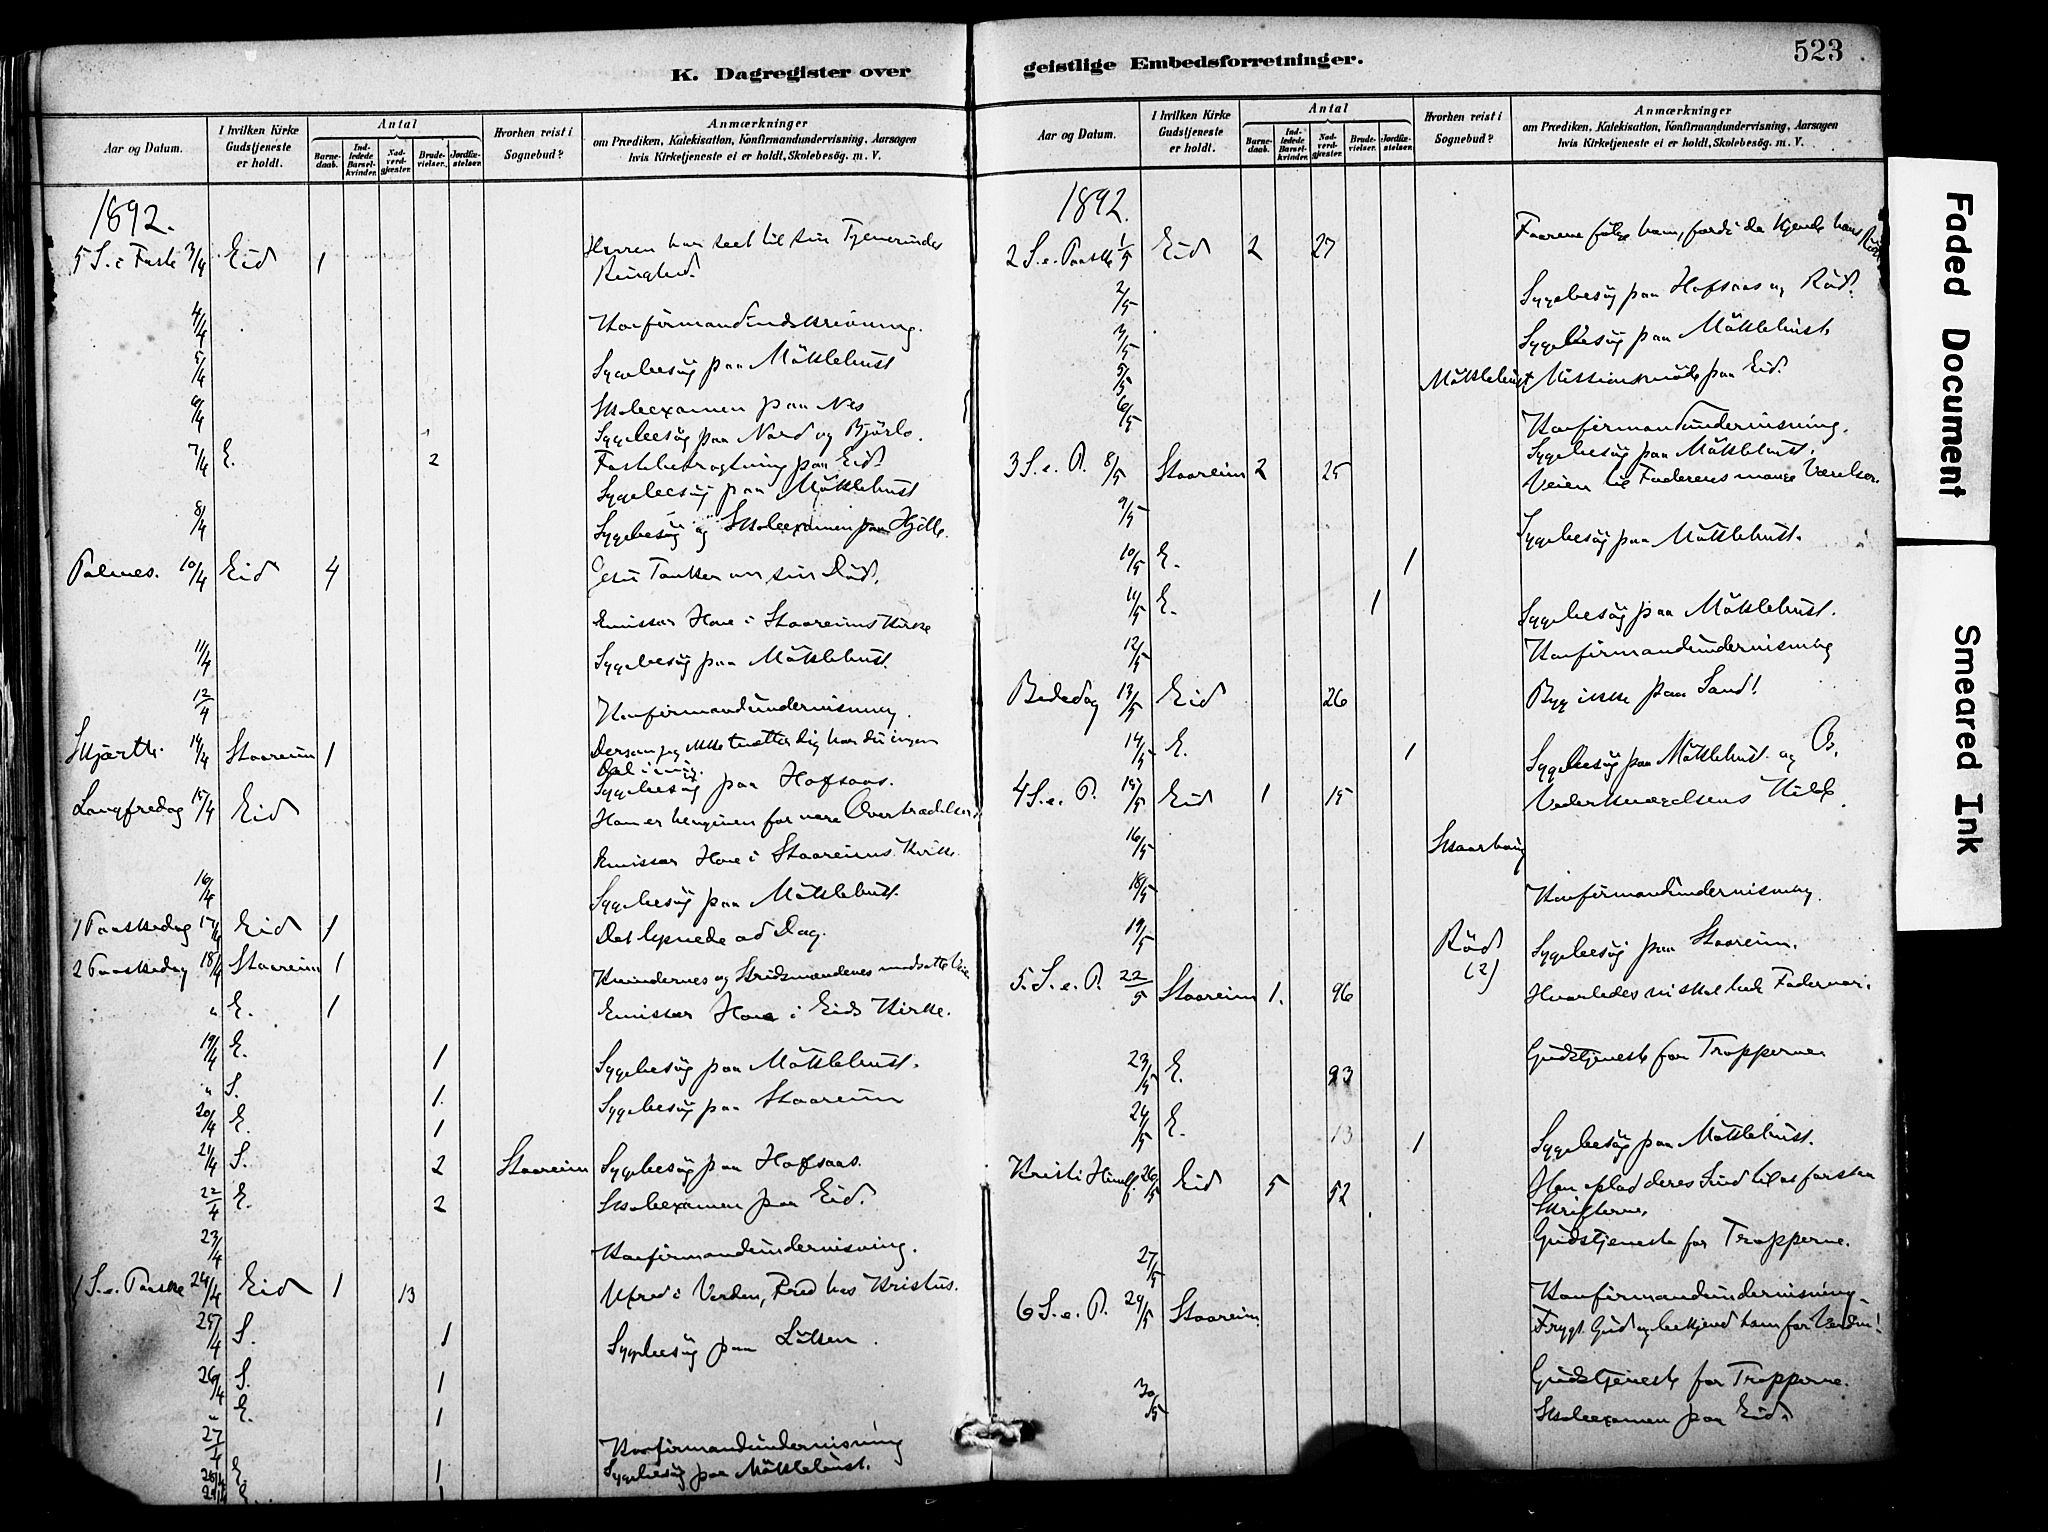 K. Dagregister over
Aar og Datum.
I hvilken Kirke Gudstjeneste er holdt.
Antal
Barnedaab.
Indledede Barselkvinder.
Nadverdgjæster.
Brudevielser.
Jordfæstelser.
Hvorhen reist i Sognebud?
Anmærkninger
om Prædiken, Katekisation, Konfirmandundervisning, Aarsagen
hvis Kirketjeneste ei er holdt, Skolebesög. m. V.
1892.
5 S. i Faste 3/4 Eid 1 Herren har seet til sin Tjenerindes
Ringhed.
4/4 Konfirmandindskrivning.
5/4 Sygebesög paa Mökklebust
6/4 Skoleexamen paa Nes
Sygebesög paa Nord og Bjørlo.
7/4 E. 2 Fastebetragtning paa Eid.
Sygebesög paa Mökklebust
8/4 Sygebesög og Skoleexamen paa Hjelle.
Palmes. 10/4 Eid 4 Jesu Tanker om sin Död.
Emissær Hove i Staareims Kirke
11/4 Sygebesög paa Mökklebust.
12/4 Konfirmandundervisning.
Skjærth. 14/4 Staareim 1 Dersom jeg ikke tvætter dig har du ingen
Del i mig.
Sygebesög paa Hofsaas.
Langfredag 15/4 Eid Han er hengiven for vore Overtrædelser.
Emissær Hove i Staareims Kirke.
16/4 Sygebesög paa Mökklebust.
1 Paaskedag 17/4 Eid 1 Det lysnede ad Dag.
2 Paaskedag 18/4 Staareim 1 Kvindernes og Stridsmændenes modsatte Veie
" E. 1 Emissær Hove i Eids Kirke.
19/4 E. 1 Sygebesög paa Mökklebust.
" S. 1. Sygebesög paa Staareim
20/4 E. 1
21/4 S. 2 Staareim Sygebesög paa Hofsaas.
22/4 E. 2 Skoleexamen paa Eid.
23/4 Konfirmandundervisning.
1 S. e. Paaske 24/4 Eid 1 13 Ufred i Verden, Fred hos Kristus.
25/4 S. 1 Sygebesög paa
26/4 S. 1
" E. 1
27/4 Konfirmandundervisning
28/4 E. 1 Sygebesög paa Mökklebust.
29/4 E. 1
geistlige Embedsforretninger.
523
Aar og Datum.
I hvilken Kirke Gudstjeneste er holdt.
Antal
Barnedaab.
Indledede Barselkvinder.
Nadverdgjæster.
Brudevielser.
Jordfæstelser.
Hvorhen reist i Sognebud?
Anmærkninger
om Prædiken, Katekisation, Konfirmandundervisning, Aarsagen
hvis Kirketjeneste ei er holdt, Skolebesög. m. V.
1892.
2 S. e. Paaske 1/5 Eid 2 27 Faarene følge ham, fordi de kjende hans Røst
2/5 Sygebesög paa Hofsaas og Röd.
3/5 Sygebesög paa Mökklebust.
5/5 Mökklebust Missionsmöde paa Eid.
6/5 Konfirmandundervisning.
Sygebesög paa Mökklebust.
3 S. e. P. 8/5 Staareim 2 25 Veien til Faderens mange Værelser.
9/5 Sygebesög paa Mökklebust.
10/5 E. 1
11/5 E. 1 Sygebesög paa Mökklebust.
12/5 Konfirmandundervisning
Bededag 13/5 Eid 26 Byg ikke paa Sand!
14/5 E. 1 Sygebesög paa Mökklebust og Os.
4 S. e. P. 15/5 Eid 1 15 Vederkvægelsens Kilde.
16/5 Skaarhaug
18/5 Konfirmandundervisning.
19/5 Röd (2) Sygebesög paa Staareim.
5. S. e. P. 22/5 Staareim 1. 96 Hvorledes vi skal bede Fadervor.
23/5 E. 93 Gudstjeneste for Tropperne
24/5 E. 13 1 Sygebesög paa Mökklebust.
Kristi Himlf. 26/5 Eid 5 52 Han oplod deres Sind til at forstaa
Skrifterne.
Gudstjeneste for Tropperne.
27/5 Konfirmandundervisning.
6 S. e. P. 29/5 Staareim. Frygt Gud og bekjend ham for Verden!
Gudstjeneste for Tropperne.
30/5 Skoleexamen paa Eid.
Faded Document
Smeared Ink